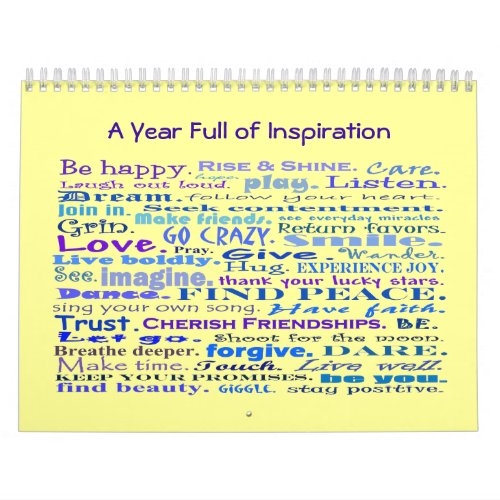 A Year Full of Inspiration
Be happy. RISE & SHINE. Care.
Laugh out loud. hope. play. Listen.
Dream. follow your heart.
Join in. Seek contentment.
Grin. Make friends. see everyday miracles
GO CRAZY. Return favors.
Love. Pray. Give. Smile.
Live boldly. Hug. Wander.
See. imagine. EXPERIENCE JOY.
thank your lucky stars.
Dance. FIND PEACE.
sing your own song. Have faith.
Trust. CHERISH FRIENDSHIPS. BE.
Let go. Shoot for the moon.
Breathe deeper. forgive. DARE.
Make time. Touch. Live well.
KEEP YOUR PROMISES. be you.
find beauty. GIGGLE. stay positive.